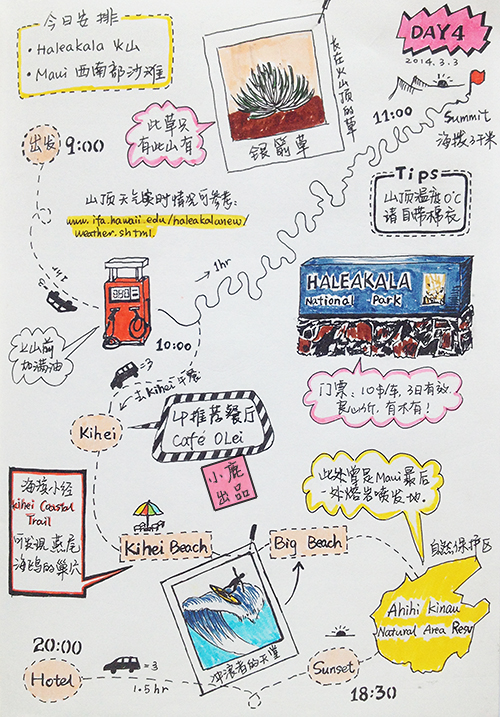 今日安排
• Haleakala 火山
• Maui 西南部沙滩
DAY4
2014.3.3
长在火山顶的草
银箭草
此草只
有此山有
出发 9:00
11:00
Summit
海拔3千米
Tips
山顶温度0℃
请自带棉衣
山顶天气实时情况可参考:
www.ifa.hawaii.edu/haleakalanew/
weather.shtml
1hr
1hr
上山前
加满油
10:00
HALEAKALA
National Park
门票: 10$/车, 3日有效.
良心价, 有木有!
=3
去Kihei午餐
Kihei
LP推荐餐厅
Café OLei
小鹿
出品
此处曾是Maui最后
一处熔岩喷发地.
海滨小径
Kihei Coastal
Trail
可发现燕尾
海鸥的巢穴
Kihei Beach
Big Beach
自然保护区
Ahihi Kinau
Natural Area Resv
冲浪者的天堂
20:00
Hotel
=3
1.5hr
Sunset
18:30